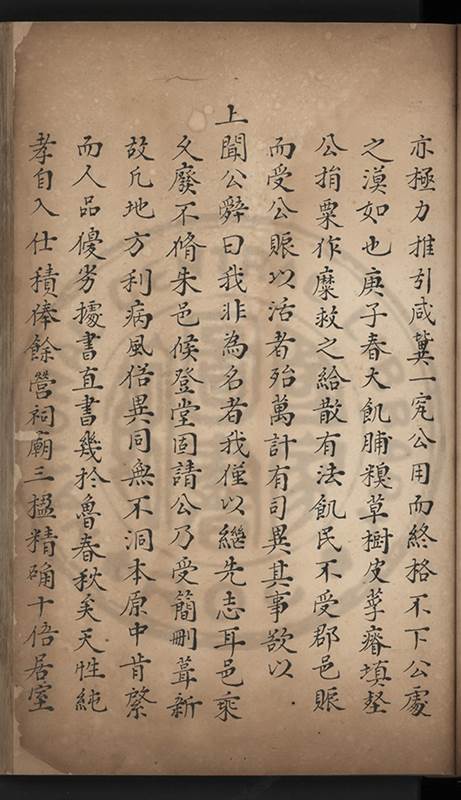 亦極力推引咸冀一究公用而終格不下公處
之漠如也庚子春大飢脯糗草樹皮莩瘠填壑
公捐粟作糜救之給散有法飢民不受郡邑賑
而受公賑以活者殆萬計有司異其事欲以
上聞公辭曰我非為名者我僅以繼先志耳邑乘
久廢不脩朱邑候登堂固請公乃受簡刪葺新
故凡地方利病風俗異同無不洞本原中肯綮
而人品優劣據書直書幾於魯春秋矣天性純
孝自入仕積俸餘營祠廟三楹精确十倍居室